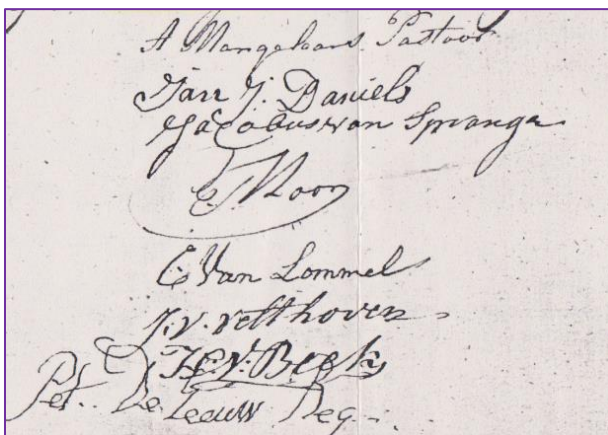 A Mangelaars Pastoor
Jan J. Daniels
Jacobus van Spranga
Moon
C Van Lommel
J. v. velthoven
H V. Beek
Pet. De Leeuw